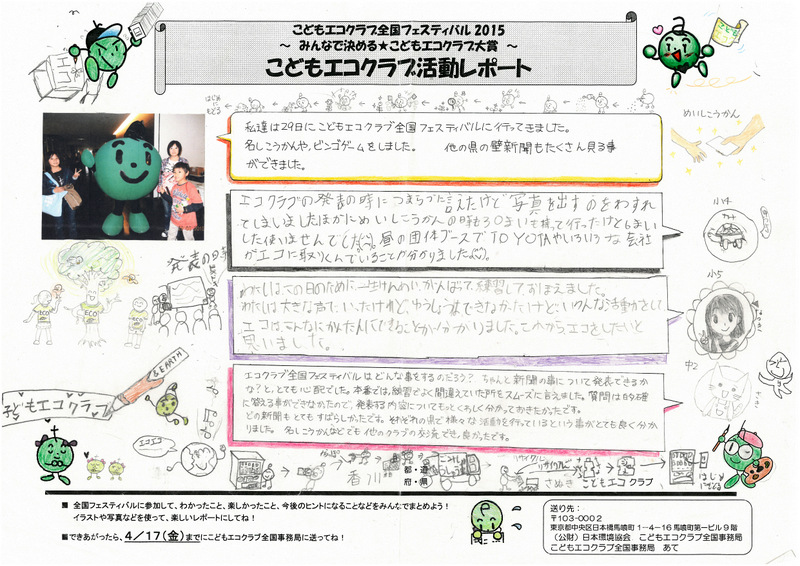 こどもエコクラブ全国フェスティバル 2015
～ みんなで決める★こどもエコクラブ大賞 ～
こどもエコクラブ活動レポート
はじめにもどる
私達は29日にこどもエコクラブ全国フェスティバルに行ってきました。
名しこうかんや、ビンゴゲームをしました。 他の県の壁新聞もたくさん見る事
ができました。
めいしこうかん
エコクラブの発表の時につまらずに言えたけど写真を出すのをわすれ
てしまいましたほかにめいしこうかんの時も30まいも持って行ったけど6まい
しか使いませんでした。昼の団体ブースでTOYOTAやいろいろな会社
がエコに取りくんでいることが分かりました。
小4
発表の時
ECO
ECO
ECO
わたしは、この日のために一生けんめいがんばって練習しておぼえました。
わたしは大きな声でいったけれど、ゆうしょうはできなかったけど、いろんな活動をして
エコはこんなにかんたんにできることが分かりました。これからエコをしたいと
思いました。
小5
エコクラブ全国フェスティバルはどんな事をするのだろう？ ちゃんと新聞の事について発表できるか
な？と、とても心配でした。本番では、練習でよく間違えていた所をスムーズに言えました。質問は的確
に答える事ができなかったので、発表する内容についてもっとくわしく分かっておきたかったです。
どの新聞もとてもすばらしかったです。それぞれの県で様々な活動を行っているという事がとても良く分か
りました。 名しこうかんなどでも他のクラブの友達と交流でき、良かったです。
中2
& EARTH
子どもエコクラブ
エコエコ
香川
都・道
府・県
リサイクル
さぬき こどもエコクラブ
はじめにもどる
■ 全国フェスティバルに参加して、わかったこと、楽しかったこと、今後のヒントになることなどをみんなでまとめよう！
イラストや写真などを使って、楽しいレポートにしてね！
■ できあがったら、4／17(金)までにこどもエコクラブ全国事務局に送ってね！
送り先：
〒103-0002
東京都中央区日本橋馬喰町 1－4－16 馬喰町第一ビル 9 階
（公財）日本環境協会 こどもエコクラブ全国事務局
こどもエコクラブ全国事務局 あて